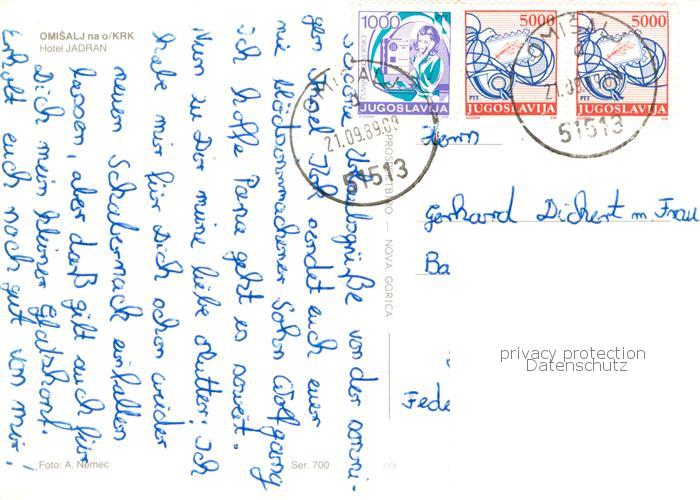 OMIŠALJ na o/KRK
Hotel JADRAN
1000
JUGOSLAVIJA
5000
PTT
JUGOSLAVIJA
5000
PTT
JUGOSLAVIJA
OMIŠALJ
21.09.89.08
51513
OMIŠALJ
21.09.89
51513
Schöne Urlaubsgrüße von der sonni-
gen Insel Krk sendet euch euer
Sohn Wolfgang
ich hoffe Papa geht es soweit.
Nun zu Dir meine liebe Mutter! Ich
habe mir für Dich schon wieder
neuen Schabernack einfallen
lassen, aber daß gilt auch für
Dich mein kleiner Glatzkopf.
Erholt euch noch gut von mir!
Herrn
Gerhard Dichert m. Frau
Ba
Fede
NOVA GORICA
privacy protection
Datenschutz
Foto: A. Nemec
Ser. 700